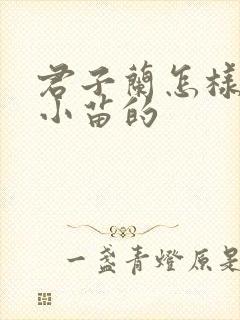 君子蘭怎樣
小苗的
一盞青燈原是